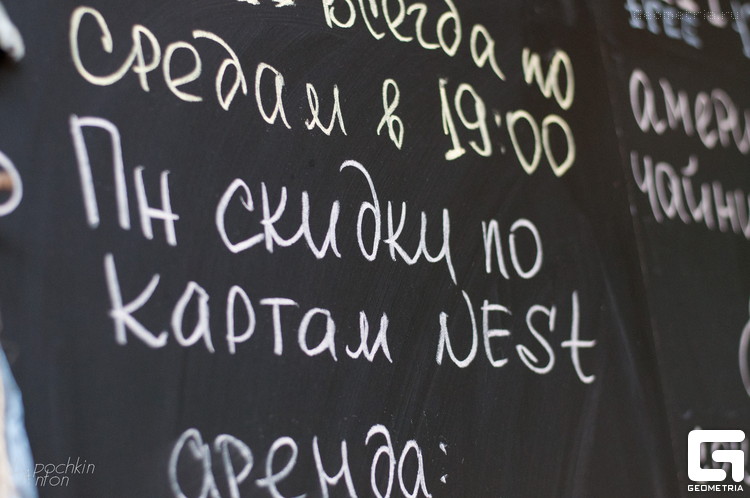 всегда по
средам в 19:00
Пн скидки по
картам NESt
аренда:
амер
чайни
geometria.ru
pochkin
nton
GEOMETRIA